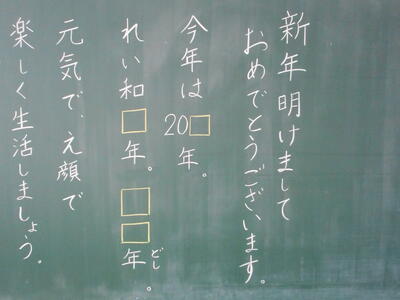 新年明けまして
おめでとうございます。
今年は20□年。
れい和□年。□□年。
どし
元気で、え顔で
楽しく生活しましょう。